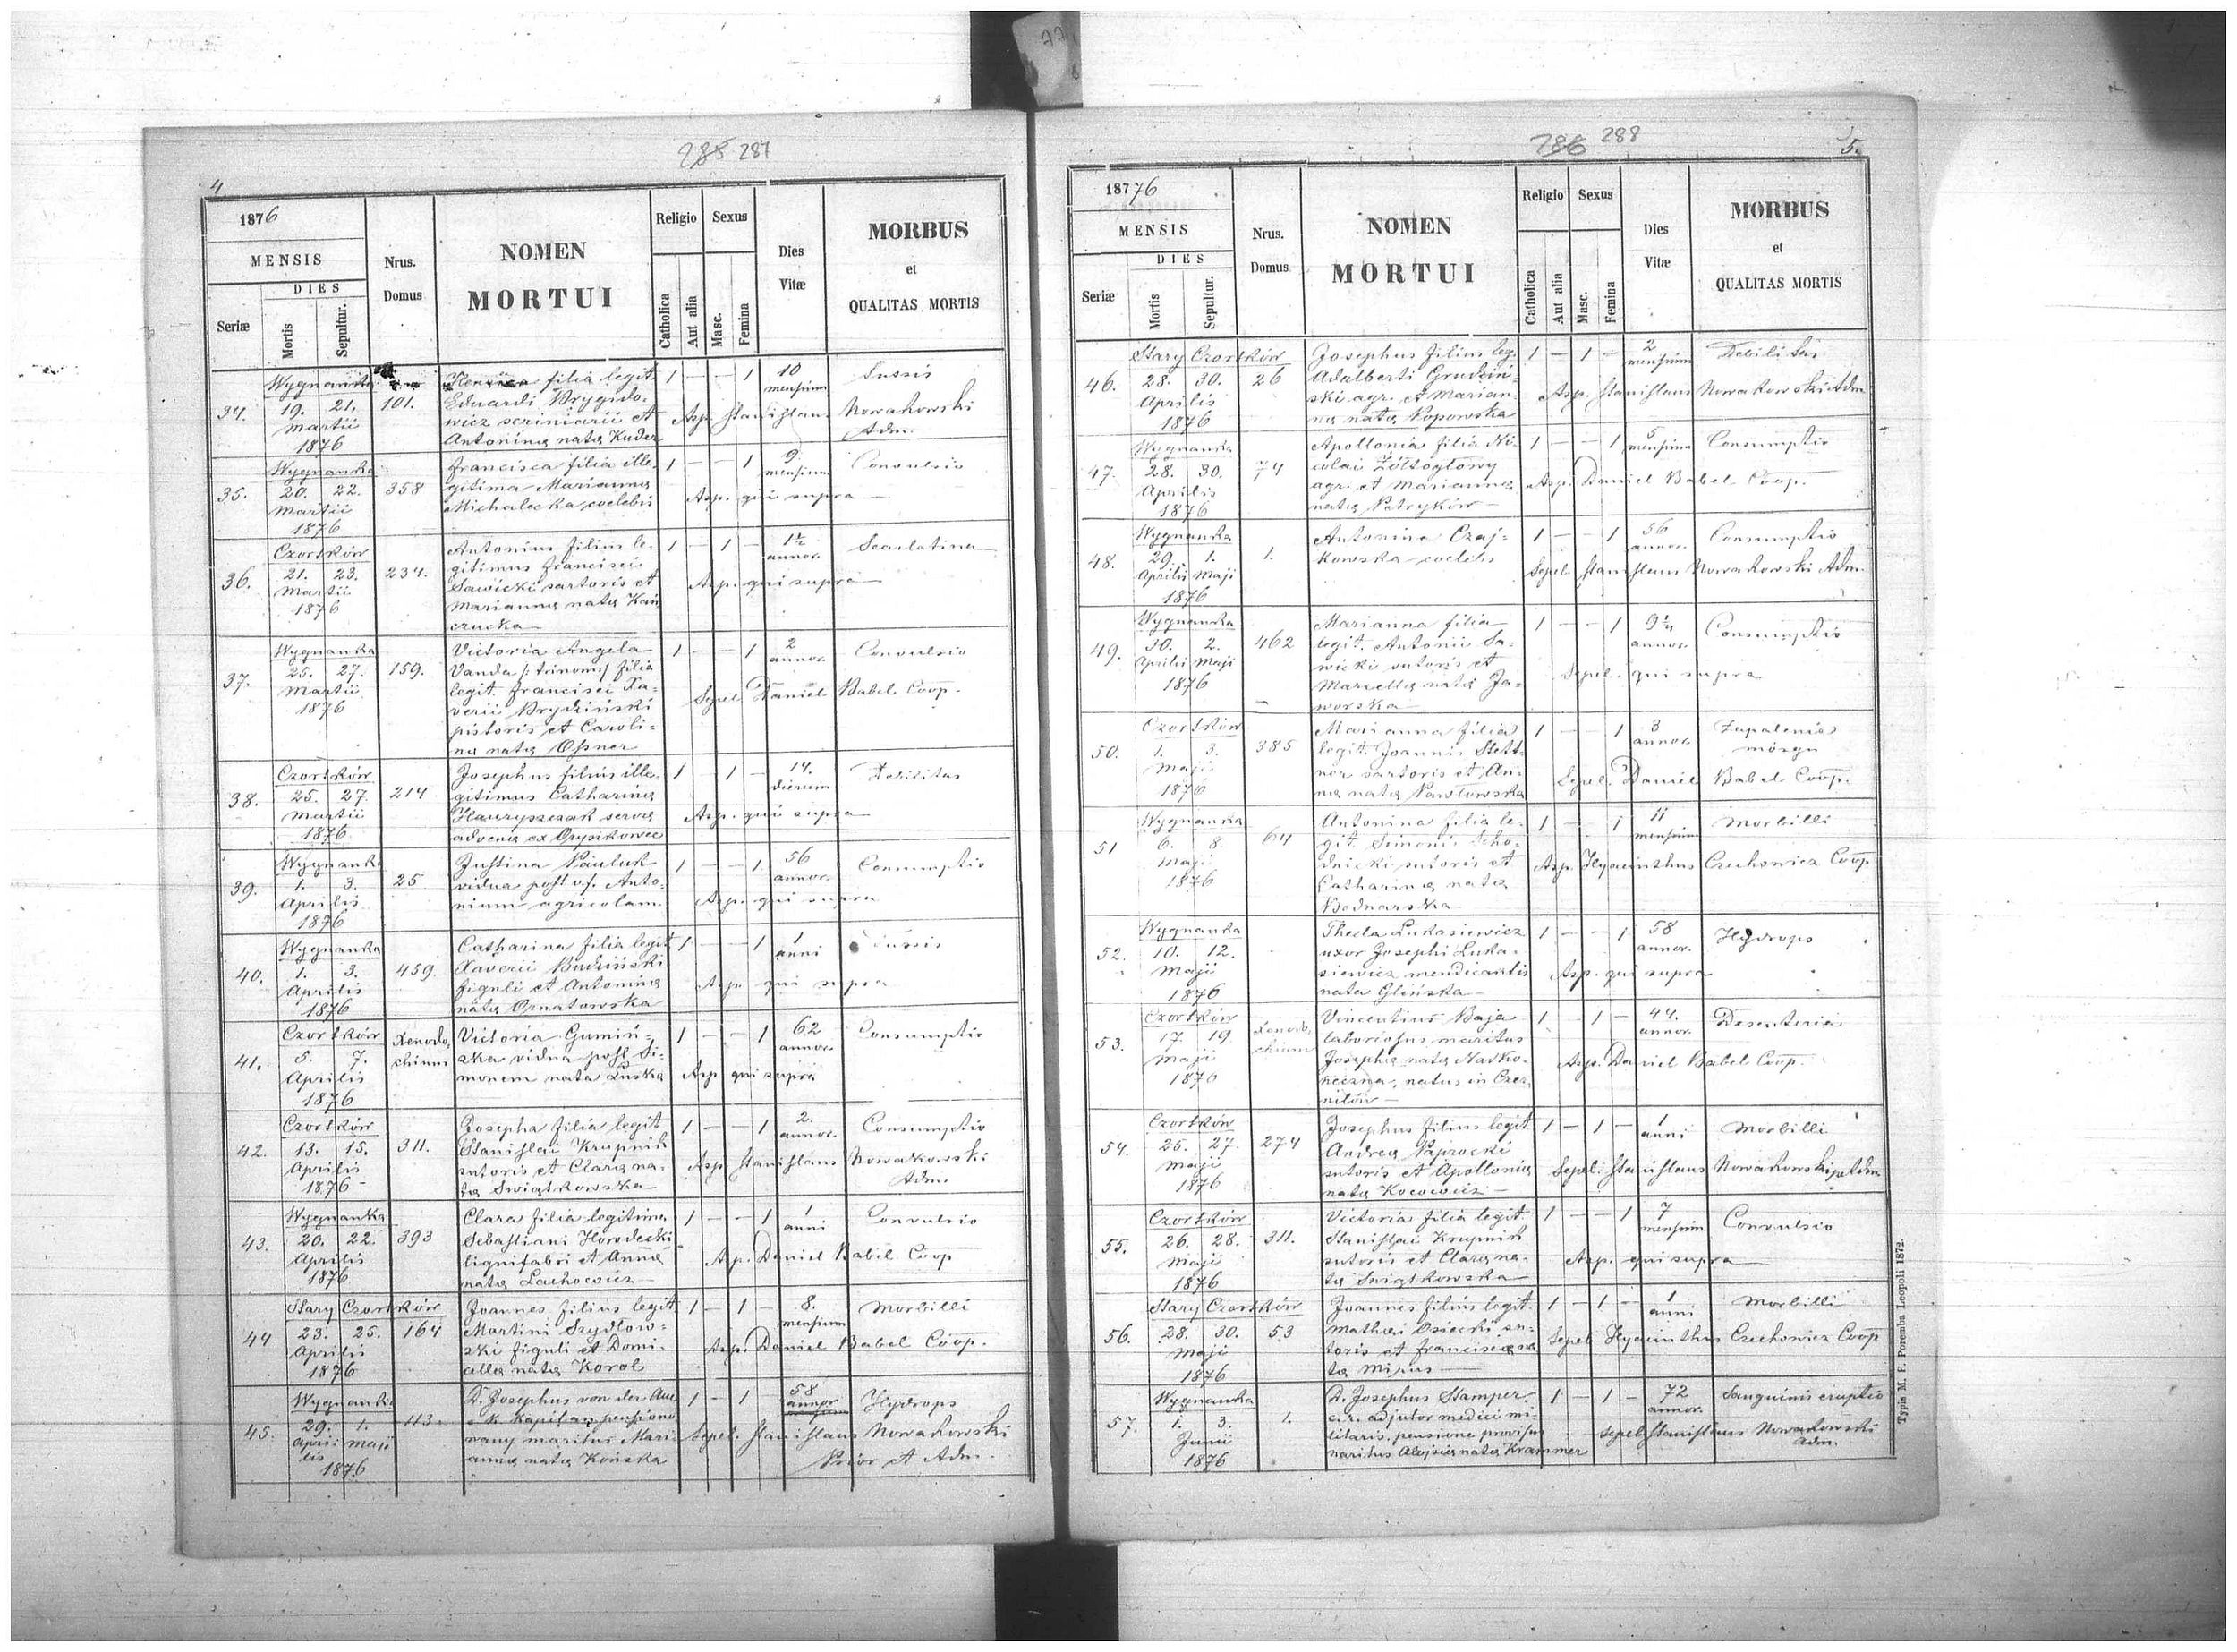 285 287
4
1876
MENSIS
DIES
Seriæ
Mortis
Sepultur.
Nrus.
Domus
NOMEN
MORTUI
Religio
Catholica
Aut alia
Sexus
Masc.
Femina
Dies
Vitæ
MORBUS
et
QUALITAS MORTIS
Wygnanka filia legit. 1 — — 1 10 Tussis
34. 19. 21. 101. Eduardi Brygido- mensium
Martii wicz scriniarii et Asp. Stanislaus Nowakowski
1876 Antoninæ natæ Kuder Adm.
Wygnanka Francisca filia ille- 1 — — 1 9 Convulsio
35. 20. 22. 358 gitima Mariannæ mensium
Martii Michalecka coelebis Asp. qui supra —
1876
Czortków Antonius filius le- 1 — 1 — 1½ Scarlatina
36. 21. 23. 234. gitimus Francisci annor.
Martii Sawicki sartoris et Asp. qui supra
1876 Mariannæ natæ
czucka
Wygnanka Victoria Angela 1 — — 1 2 Convulsio
37. 25. 27. 159. Vanda /: trinom:/ filia annor.
Martii legit. Francisci Xa-
1876 verii Brydziński Sepel. Daniel Babel Coop.
pistoris et Caroli-
næ natæ Ossner
Czortków Josephus filius ille- 1 — 1 — 14. Debilitas
38. 25. 27. 214 gitimus Catharinæ dierum
Martii Hauryszczak servæ Asp. qui supra
1876 advenæ ex
Wygnanka Justina Pauluk 1 — — 1 56 Consumptio
39. 1. 3. 25 vidua post v.f. Anto- annor.
Aprilis nium agricolam Asp. qui supra
1876
Wygnanka Catharina filia legit 1 — — 1 1 Tussis
40. 1. 3. 459. Xaverii Budziński anni
Aprilis figuli et Antoninæ Asp. qui supra
1876 natæ Ornatowska
Czortków Xenodo- Victoria Gumiń- 1 — — 1 62 Consumptio
41. 5. 7. chium ska vidua post Si- annor.
Aprilis monem nata Łuska Asp qui supra
1876
Czortków Josepha filia legit 1 — — 1 2. Consumptio
42. 13. 15. 311. Stanislai Krupnik annor.
Aprilis sutoris et Claræ na- Asp Stanislaus Nowakowski
1876 tæ Swiątkowska Adm.
Wygnanka Clara filia legitima 1 — — 1 1 Convulsio
43. 20. 22. 393 Sebastiani Horodecki anni
Aprilis lignifabri et Annæ Asp. Daniel Babel Coop
1876 natæ Lachowicz
Stary Czortków Joannes filius legit. 1 — 1 — 8. Morbilli
44 23. 25. 164 Martini Szydłow- mensium
Aprilis ski figuli et Domi- Asp. Daniel Babel Coop.
1876 cellæ natæ Korol
Wygnanka D. Josephus von der Aue 1 — 1 — 58 Hydrops
45. 29. 1. 113. k. Kapitan pensiono- annor
Apri- Maji wany maritus Mari- Sepel. Stanislaus Nowakowski
lis annæ natæ Końska Prior et Adm.
1876
286 288
5.
1876
MENSIS
DIES
Seriæ
Mortis
Sepultur.
Nrus.
Domus
NOMEN
MORTUI
Religio
Catholica
Aut alia
Sexus
Masc.
Femina
Dies
Vitæ
MORBUS
et
QUALITAS MORTIS
Stary Czortków Josephus filius leg. 1 — 1 — 2 Debilitas
46. 28. 30. 26 Adalberti Grudziń- mensium
Aprilis ski agr. et Marian- Asp. Stanislaus Nowakowski Adm
1876 næ natæ Popowska
Wygnanka Apollonia filia Ni- 1 — — 1 5 Consumptio
47. 28. 30. 74 colai Żółtogłowy mensium
Aprilis agr. et Mariannæ Asp. Daniel Babel Coop.
1876 natæ Petryków
Wygnanka Antonina Czaj- 1 — — 1 56 Consumptio
48. 29. 1. 1. kowska coelebs annor.
Aprilis Maji Sepel. Stanislaus Nowakowski Adm.
1876
Wygnanka Marianna filia 1 — — 1 9¼ Consumptio
49. 30. 2. 462 legit. Antonii Sa- annor.
Aprilis Maji wicki sutoris et Sepel. qui supra
1876 Marcellæ natæ Ja-
worska
Czortków Marianna filia 1 — — 1 3 Zapalenie
50. 1. 3. 385 legit. Joannis Stett- annor. mózgu
Maji ner sartoris et An- Sepel. Daniel Babel Coop.
1876 næ natæ Pawłowska
Wygnanka Antonina filia le- 1 — — 1 11 Morbilli
51 6. 8. 64 git. Simonis Scho- mensium
Maji dnicki sutoris et Asp. Hyacinthus Czechowicz Coop
1876 Catharinæ natæ
Bednarska
Wygnanka Thecla Lukasiewicz 1 — — 1 58 Hydrops
52. 10. 12. uxor Josephi Luka- annor.
Maji siewicz mendicantis Asp. qui supra
1876 nata Glińska
Czortków Xenodo- Vincentius Baja 1 — 1 — 44. Desenteria
53. 17. 19. chium laboriosus maritus annor.
Maji Josephæ natæ Asp. Daniel Babel Coop.
1876 natus in
Czortków Josephus filius legit. 1 — 1 — 1 Morbilli
54. 25. 27. 274 Andreæ Pajrocki anni
Maji sutoris et Apolloniæ Sepel. Stanislaus Nowakowski Adm
1876 natæ Kocowicz
Czortków Victoria filia legit. 1 — — 1 7 Convulsio
55. 26. 28. 311. Stanislai Krupnik mensium
Maji sutoris et Claræ na- Asp. qui supra
1876 tæ Swiątkowska
Stary Czortków Joannes filius legit. 1 — 1 — 1 Morbilli
56. 28. 30. 53 Mathæi Osiecki su- anni
Maji toris et Franciscæ na Sepel Hyacinthus Czechowicz Coop
1876 tæ Mirus
Wygnanka D. Josephus Stamper 1 — 1 — 72 Sanguinis eruptio
57. 1. 3. 1. c.r. adjutor medici mi- annor.
Junii litaris, pensione provisus Sepel Stanislaus Nowakowski
1876 maritus Alojsiæ natæ Krammer Adm.
Typis M. F. Poremba Leopoli 1872.